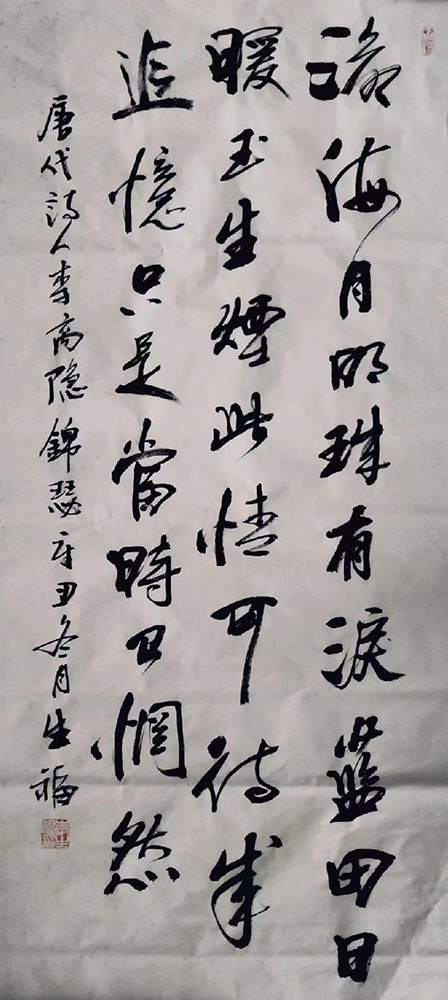 滄海月明珠有淚藍田日
暖玉生煙此情可待成
追憶只是當時已惘然
唐代詩人李商隐錦瑟辛丑冬月生福